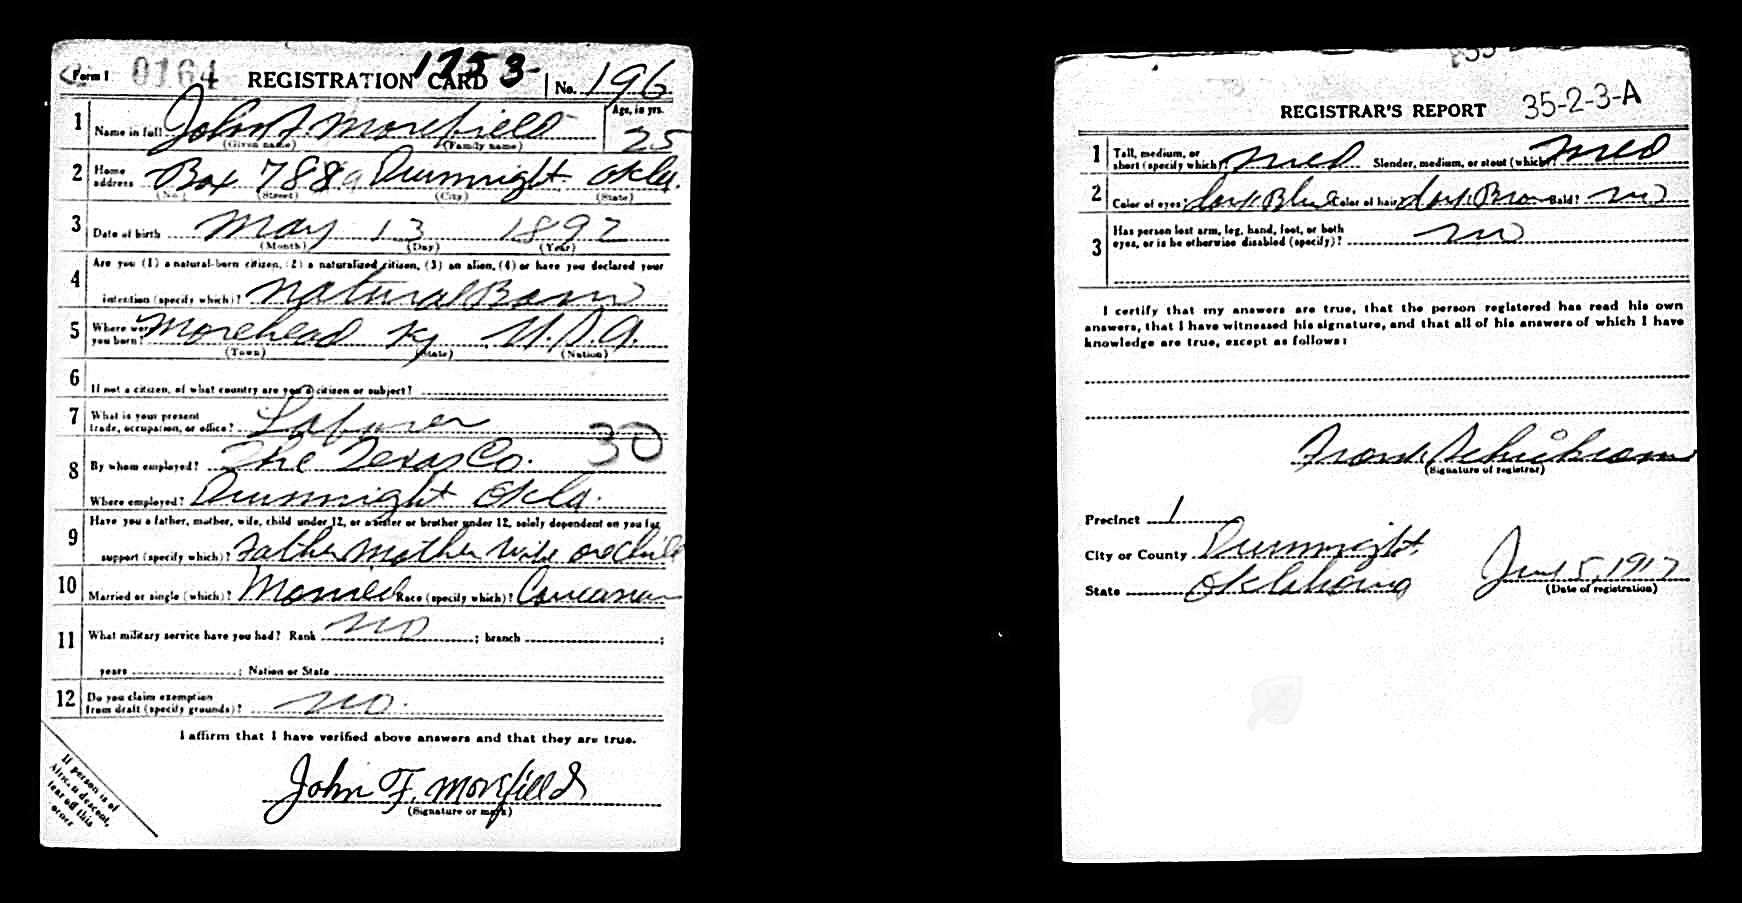 Form 1 0164 REGISTRATION CARD 1753 No. 196
1 Name in full John F Morefield Age, in yrs. 25
(Given name) (Family name)
2 Home address Box 788 Drumright Okla.
(No.) (Street) (City) (State)
3 Date of birth May 13 1892
(Month) (Day) (Year)
4 Are you (1) a natural-born citizen, (2) a naturalized citizen, (3) an alien, (4) or have you declared your
intention (specify which)? Natural Born
5 Where were you born? Morehead Ky U.S.A.
(Town) (State) (Nation)
6 If not a citizen, of what country are you a citizen or subject?
7 What is your present trade, occupation, or office? Laborer
30
8 By whom employed? The Texas Co.
Where employed? Drumright Okla.
9 Have you a father, mother, wife, child under 12, or a sister or brother under 12, solely dependent on you for
support (specify which)? Father Mother Wife one child
10 Married or single (which)? Married Race (specify which)? Caucasian
11 What military service have you had? Rank no ; branch ;
years ; Nation or State
12 Do you claim exemption from draft (specify grounds)? no.
I affirm that I have verified above answers and that they are true.
John F. Morefield
(Signature or mark)
If person is of
African descent,
tear off this
corner
REGISTRAR'S REPORT 35-2-3-A
1 Tall, medium, or short (specify which)? Med Slender, medium, or stout (which)? Med
2 Color of eyes? dark Blue Color of hair? dark Brown Bald? no
3 Has person lost arm, leg, hand, foot, or both eyes, or is he otherwise disabled (specify)? no
I certify that my answers are true, that the person registered has read his own
answers, that I have witnessed his signature, and that all of his answers of which I have
knowledge are true, except as follows:
Frank
(Signature of registrar)
Precinct 1
City or County Drumright
State Oklahoma June 5, 1917
(Date of registration)